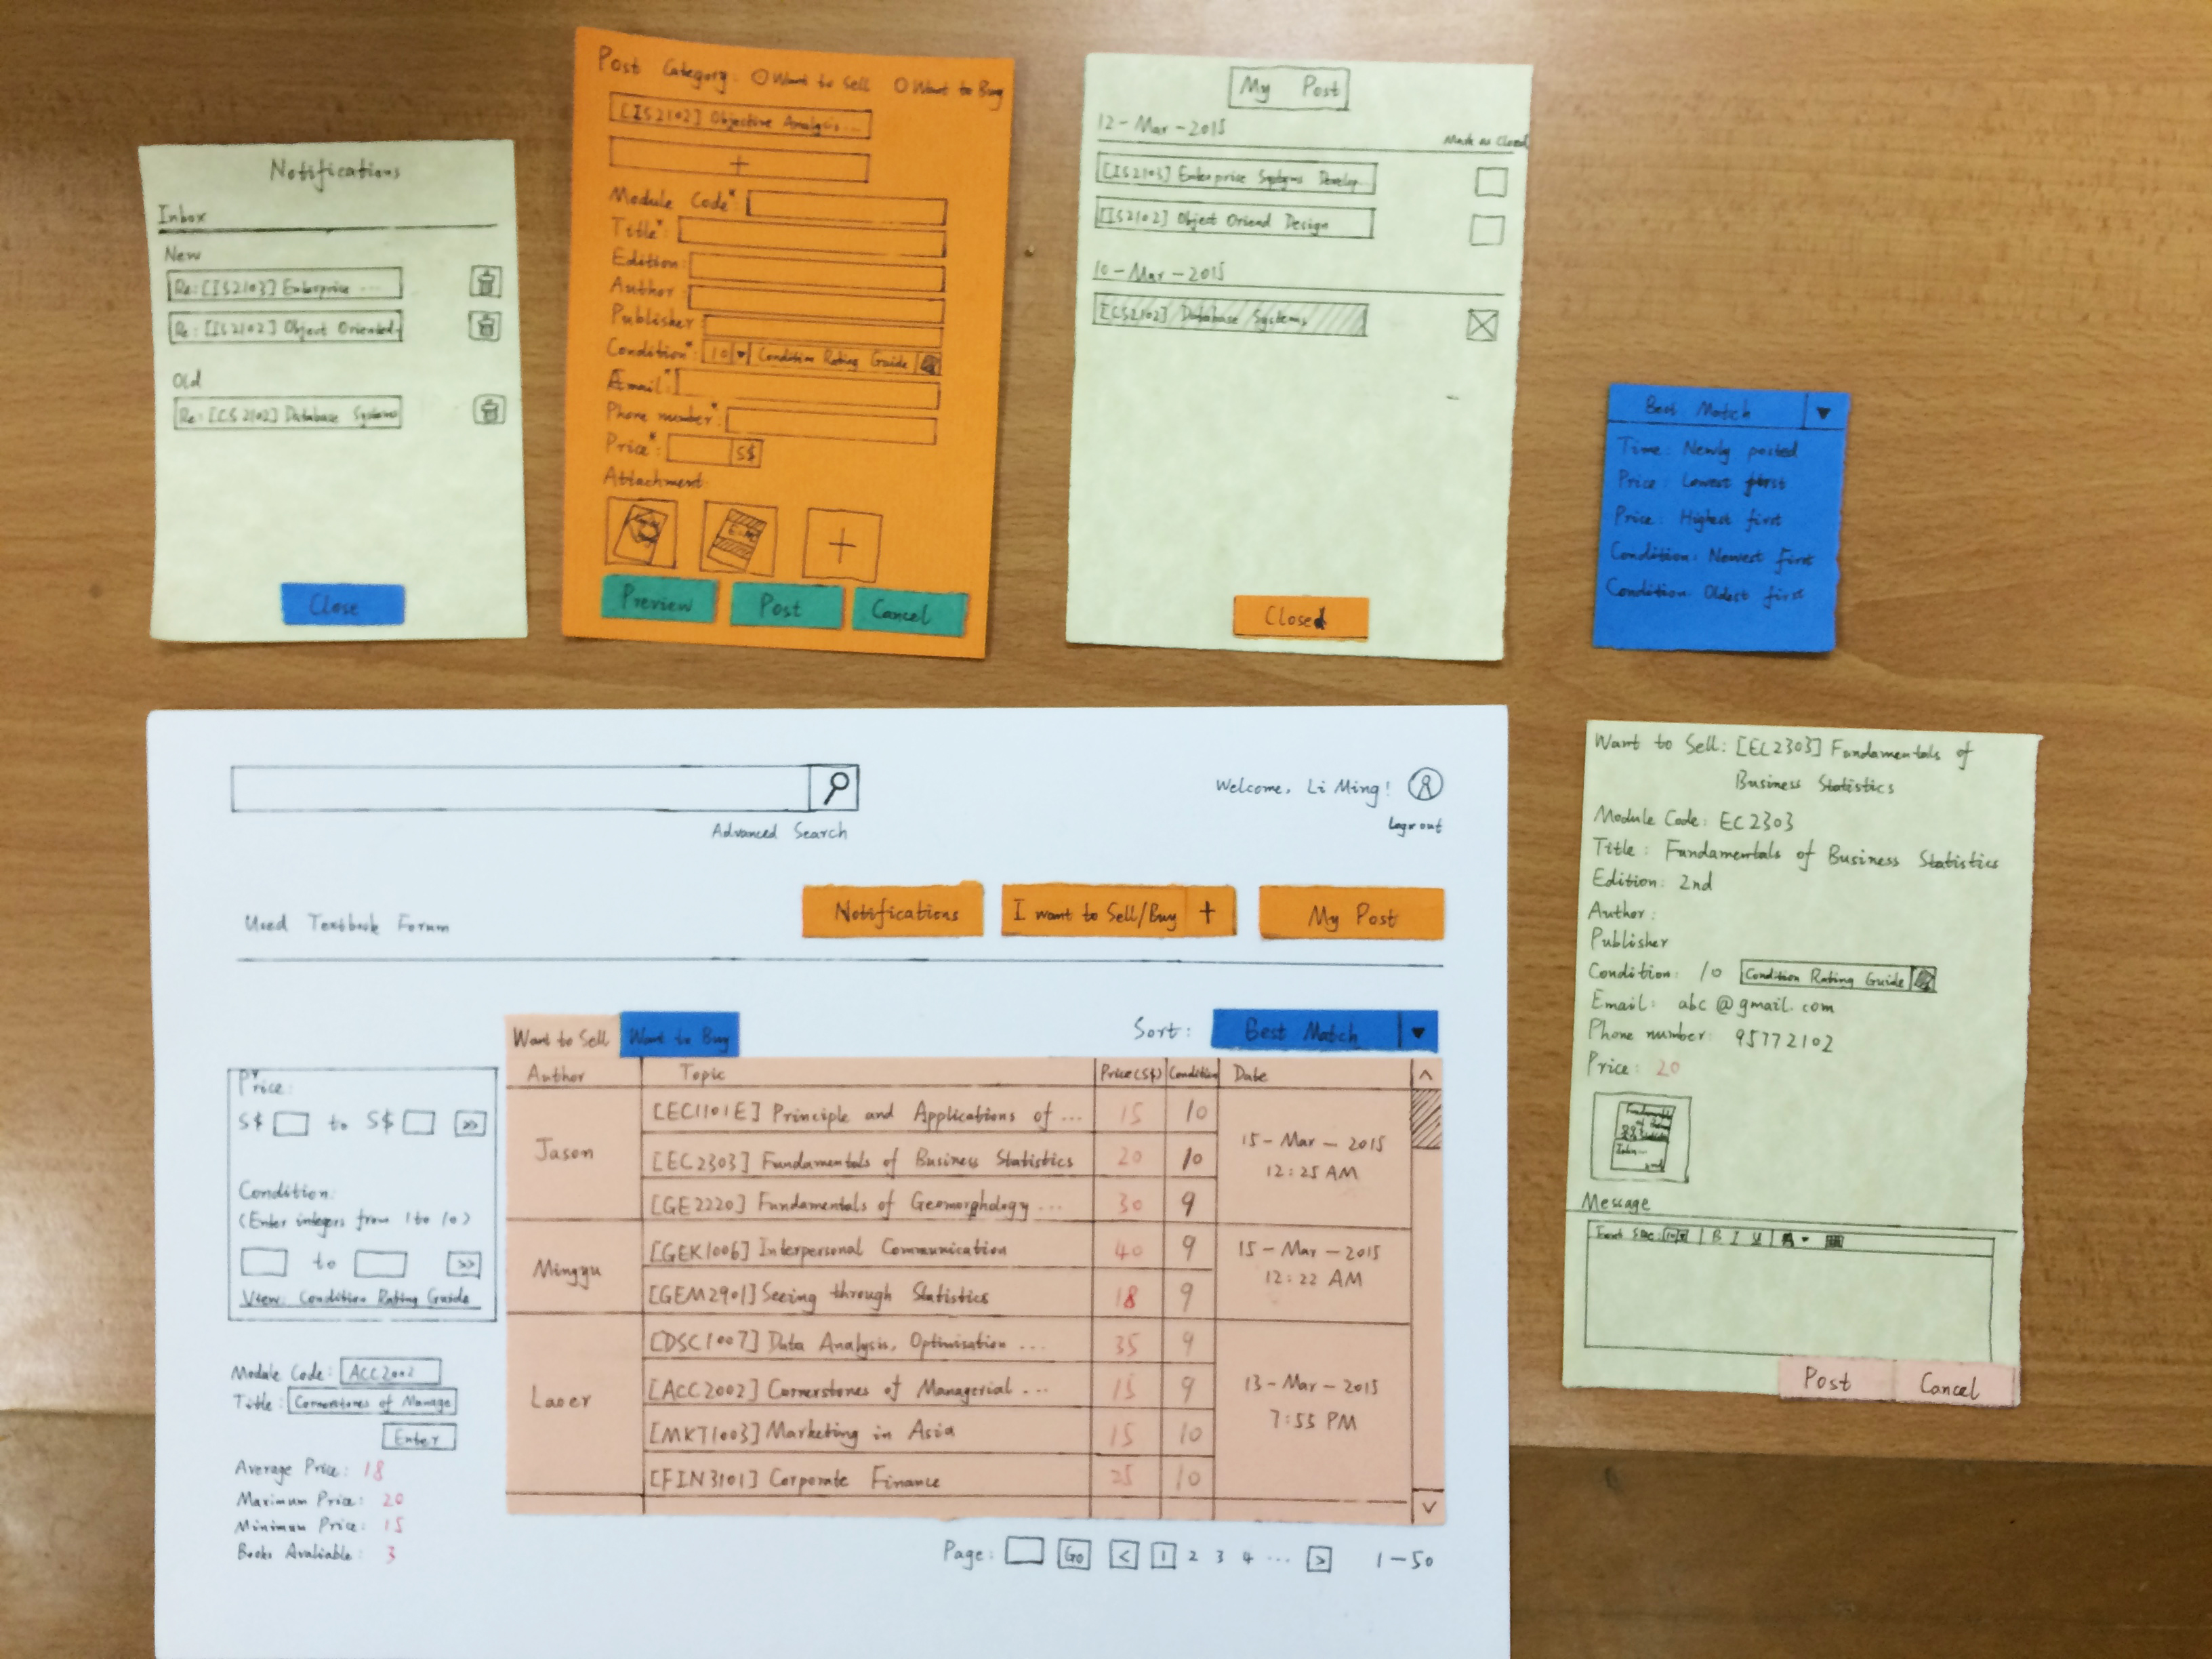 Notifications
Inbox
New
Re: [IS2103] Enterprise ...
Re: [IS2102] Object Oriented
Old
Re: [CS2102] Database Systems
Close
Post Category: Want to Sell Want to Buy
[IS2102] Objective Analysis...
+
Module Code*:
Title*:
Edition:
Author:
Publisher
Condition*: 10 Condition Rating Guide
Email*:
Phone number*:
Price*: S$
Attachment:
+
Preview Post Cancel
My Post
12-Mar-2015
Mark as Closed
[IS2103] Enterprise Systems Develop..
[IS2102] Object Oriend Design
10-Mar-2015
[CS2102] Database Systems
Closed
Best Match
Time: Newly posted
Price: Lowest first
Price: Highest first
Condition: Newest first
Condition: Oldest first
Advanced Search
Welcome, Li Ming!
Logout
Used Textbook Forum
Notifications
I want to Sell/Buy +
My Post
Want to Sell Want to Buy
Sort: Best Match
Price:
S$ to S$ >>
Condition:
(Enter integers from 1 to 10)
to >>
View: Condition Rating Guide
Module Code: ACC2002
Title: Cornerstones of Manage
Enter
Average Price: 18
Maximum Price: 20
Minimum Price: 15
Books Avaliable: 3
Author Topic Price(S$) Condition Date
Jason
[EC1101E] Principle and Applications of ... 15 10
[EC2303] Fundamentals of Business Statistics 20 10
[GE2220] Fundamentals of Geomorphology ... 30 9
15-Mar-2015
12:25 AM
Mingyu
[GEK1006] Interpersonal Communication 40 9
[GEM2901] Seeing through Statistics 18 9
15-Mar-2015
12:22 AM
Laoer
[DSC1007] Data Analysis, Optimisation ... 35 9
[ACC2002] Cornerstones of Managerial ... 15 9
[MKT1003] Marketing in Asia 15 10
[FIN3101] Corporate Finance 25 10
13-Mar-2015
7:55 PM
Page: Go < 1 2 3 4 ... > 1-50
Want to Sell: [EC2303] Fundamentals of
Business Statistics
Module Code: EC2303
Title: Fundamentals of Business Statistics
Edition: 2nd
Author:
Publisher
Condition: 10 Condition Rating Guide
Email: abc@gmail.com
Phone number: 95772102
Price: 20
Message
Font Size: B I U
Post Cancel